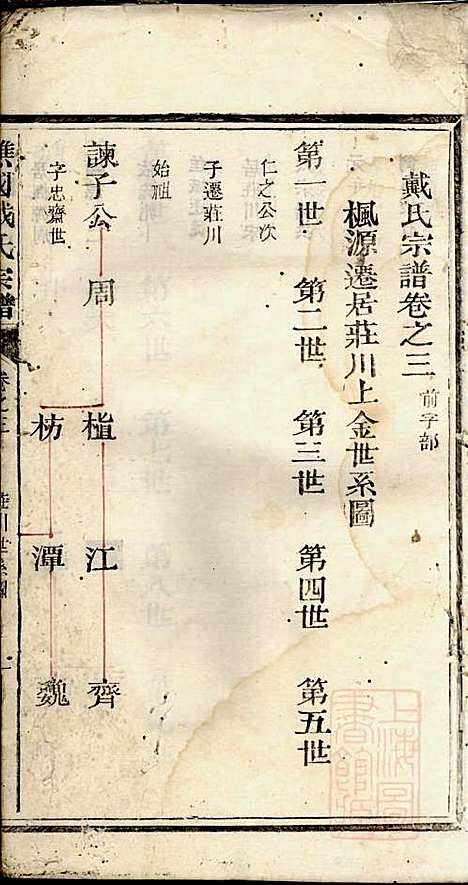 戴氏宗譜卷之三 前字部
楓源遷居莊川上金世系圖
第一世 第二世 第三世 第四世 第五世
仁之公次
子遷莊川
始祖
諫子公 周 楂 江 齊
字忠齋世
枋 潭 巍
譙國戴氏宗譜 卷之三 莊川世系圖 一
上海圖書館藏